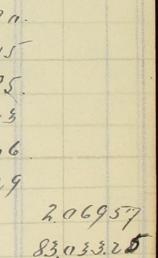 0.
5
5.
3
6
9
2.06957
83.033.25